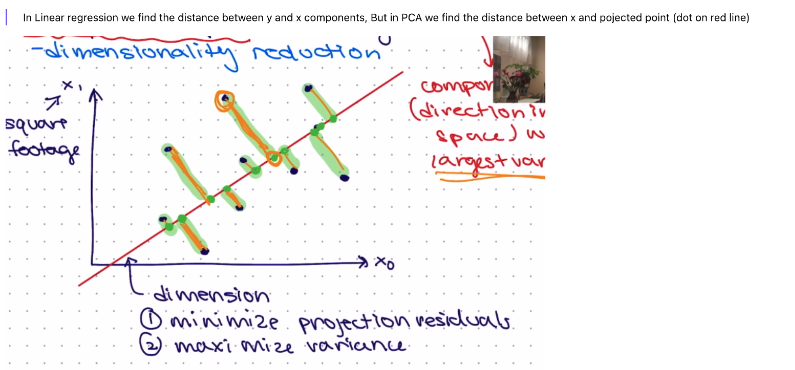 In Linear regression we find the distance between y and x components, But in PCA we find the distance between x and pojected point (dot on red line)
-dimensionality reduction
x₁
square
footage
compon
(direction in
space) w
largest var
x₀
dimension
① minimize projection residuals
② maximize variance